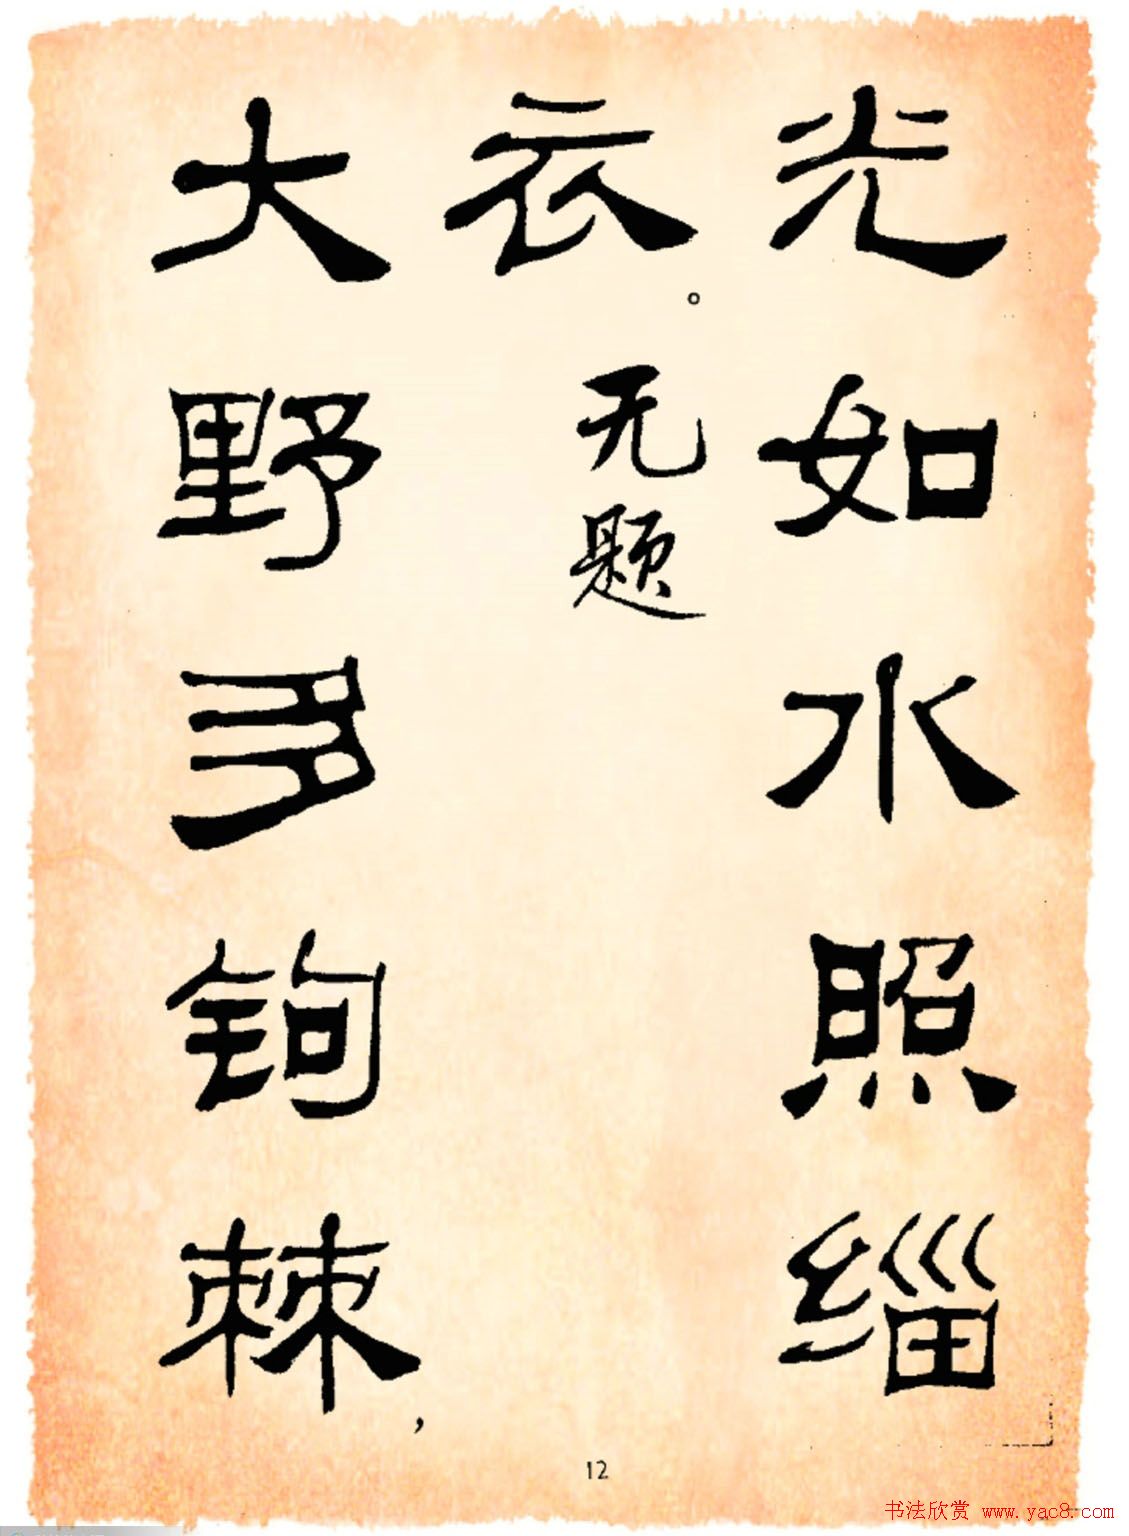 光如水照缁
衣。
无题
大野多钩棘，
12
书法欣赏 www.yac8.com